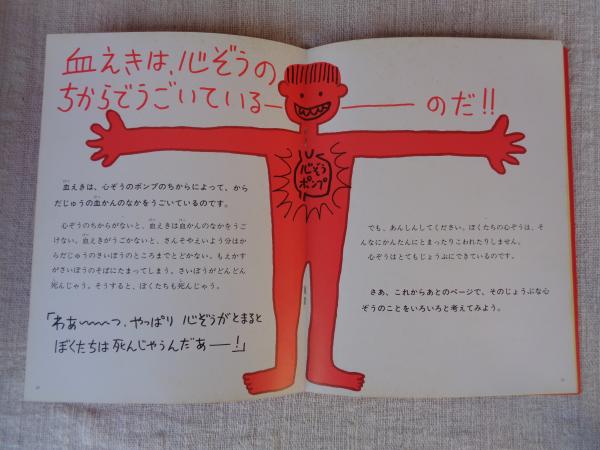 血えきは、心ぞうの
ちからでうごいている——のだ!!
心ぞう
ポンプ
血えきは、心ぞうのポンプのちからによって、から
だじゅうの血かんのなかをうごいているのです。
心ぞうのちからがないと、血えきは血かんのなかをうご
けない。血えきがうごかないと、さんそやえいよう分はか
らだじゅうのさいぼうのところまでとどかない。もえかす
がさいぼうのそばにたまってしまう。さいぼうがどんどん
死んじゃう。そうすると、ぼくたちも死んじゃう。
「わあ〜〜っ、やっぱり心ぞうがとまると
ぼくたちは死んじゃうんだあ——!」
でも、あんしんしてください。ぼくたちの心ぞうは、そ
んなにかんたんにとまったりこわれたりしません。
心ぞうはとてもじょうぶにできているのです。
さあ、これからあとのページで、そのじょうぶな心
ぞうのことをいろいろと考えてみよう。